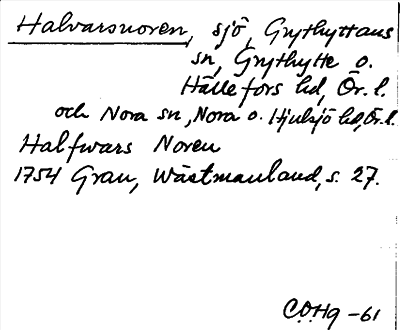 Halvarsnoren, sjö, Grythyttans
sn, Grythytte o.
Hällefors hd, Ör. l.
och Nora sn, Nora o. Hjulsjö hd, Ör. l.
Halfwars Noren
1754 Grau, Wästmanland, s. 27.
C.O.Hg -61